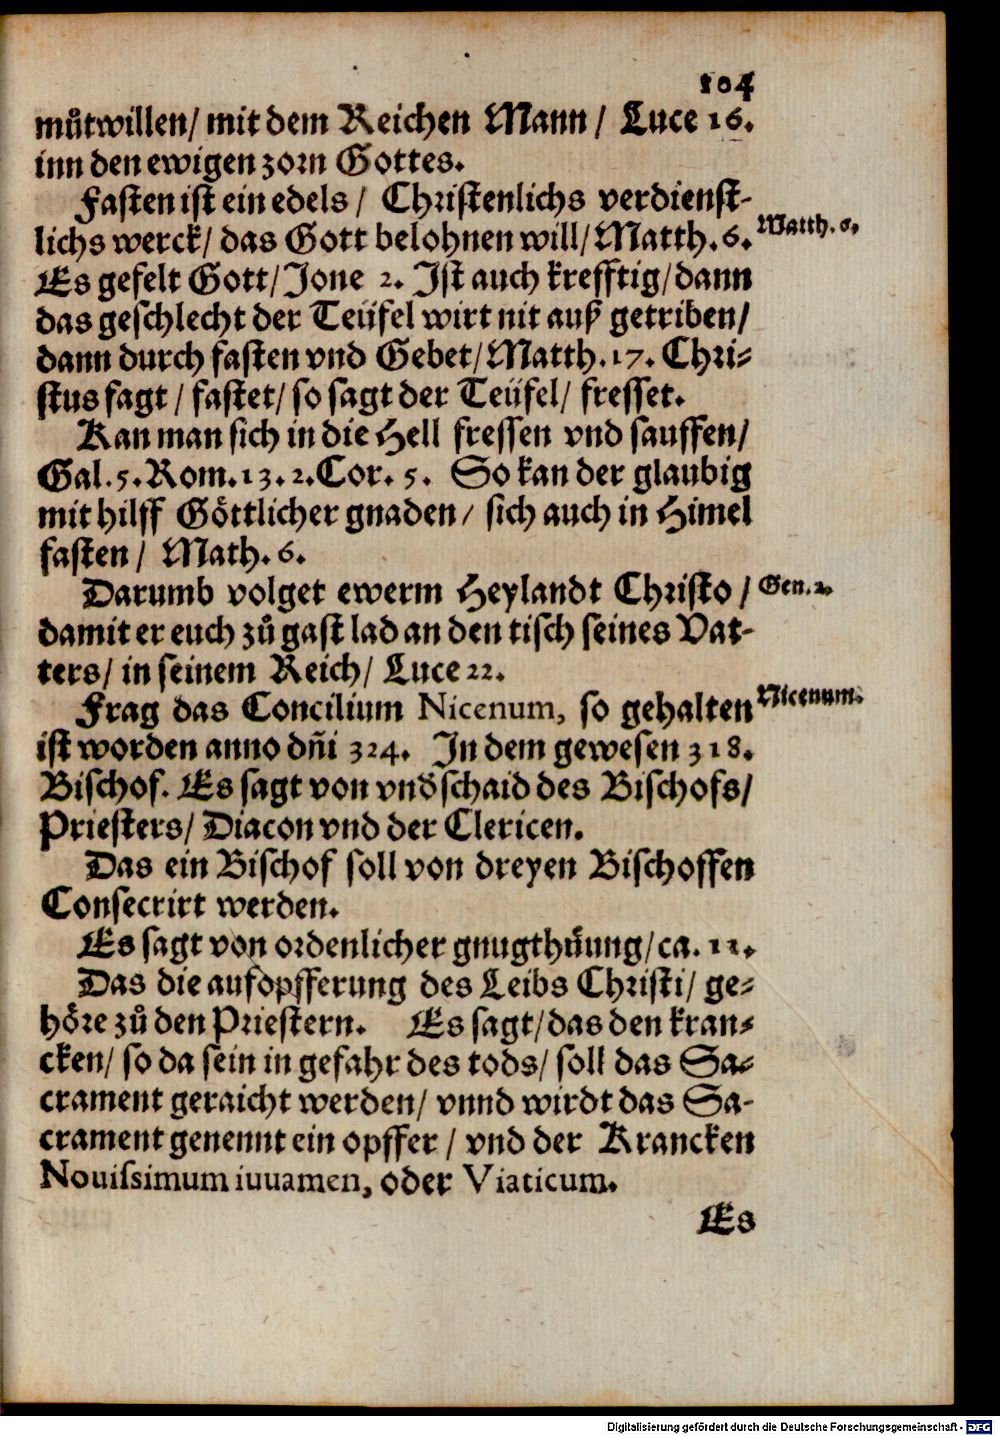 104
muͦtwillen/ mit dem Reichen Mann / Luce 16.
inn den ewigen zorn Gottes.
Fasten ist ein edels / Christenlichs verdienst-
lichs werck/ das Gott belohnen will/ Matth. 6.
Matth. 6.
Es gefelt Gott/ Jone 2. Ist auch krefftig/ dann
das geschlecht der Teüfel wirt nit auß getriben/
dann durch fasten vnd Gebet/ Matth. 17. Chri-
stus sagt / fastet/ so sagt der Teüfel/ fresset.
Kan man sich in die Hell fressen vnd sauffen/
Gal. 5. Rom. 13. 2. Cor. 5. So kan der glaubig
mit hilff Göttlicher gnaden / sich auch in Himel
fasten / Math. 6.
Darumb volget ewerm Heylandt Christo /
Gen. 2.
damit er euch zuͦ gast lad an den tisch seines Vat-
ters/ in seinem Reich/ Luce 22.
Frag das Concilium Nicenum, so gehalten
Nicenum.
ist worden anno dñi 324. In dem gewesen 318.
Bischof. Es sagt von vnd̕schaid des Bischofs/
Priesters/ Diacon vnd der Clericen.
Das ein Bischof soll von dreyen Bischoffen
Consecrirt werden.
Es sagt von ordenlicher gnugthuͤung/ ca. 11.
Das die aufopfferung des Leibs Christi/ ge-
höre zuͦ den Priestern. Es sagt/ das den kran-
cken/ so da sein in gefahr des tods/ soll das Sa-
crament geraicht werden/ vnnd wirdt das Sa-
crament genennt ein opffer / vnd der Krancken
Nouissimum iuuamen, oder Viaticum.
Es
Digitalisierung gefördert durch die Deutsche Forschungsgemeinschaft - DFG